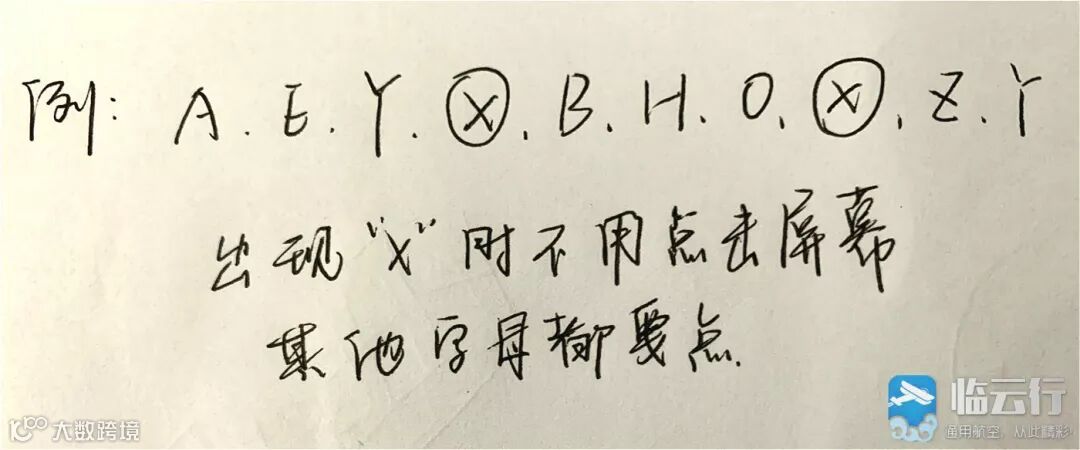 例: A. E. Y. X. B. H. O. X. Z. Y
出现"X"时不用点击屏幕
其他字母都要点.
大数跨境
临云行
通用航空, 从此精彩!